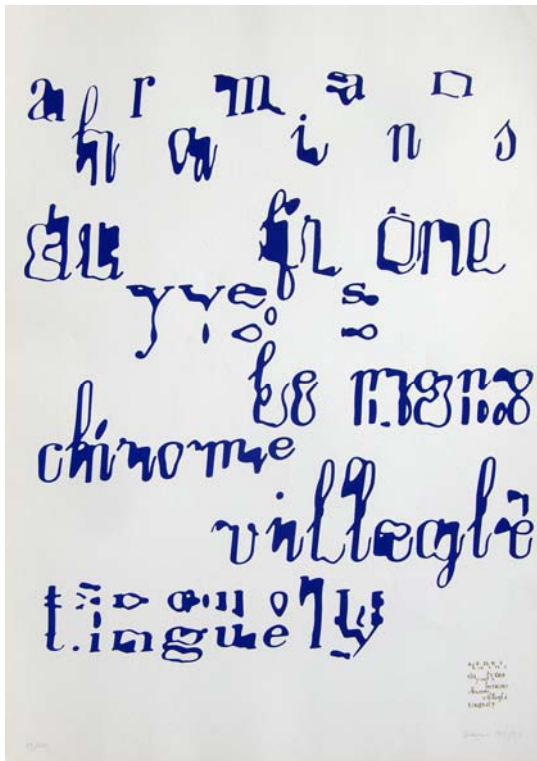 arman
hains
dufrêne
yves
le mono
chrome
villeglé
tinguely